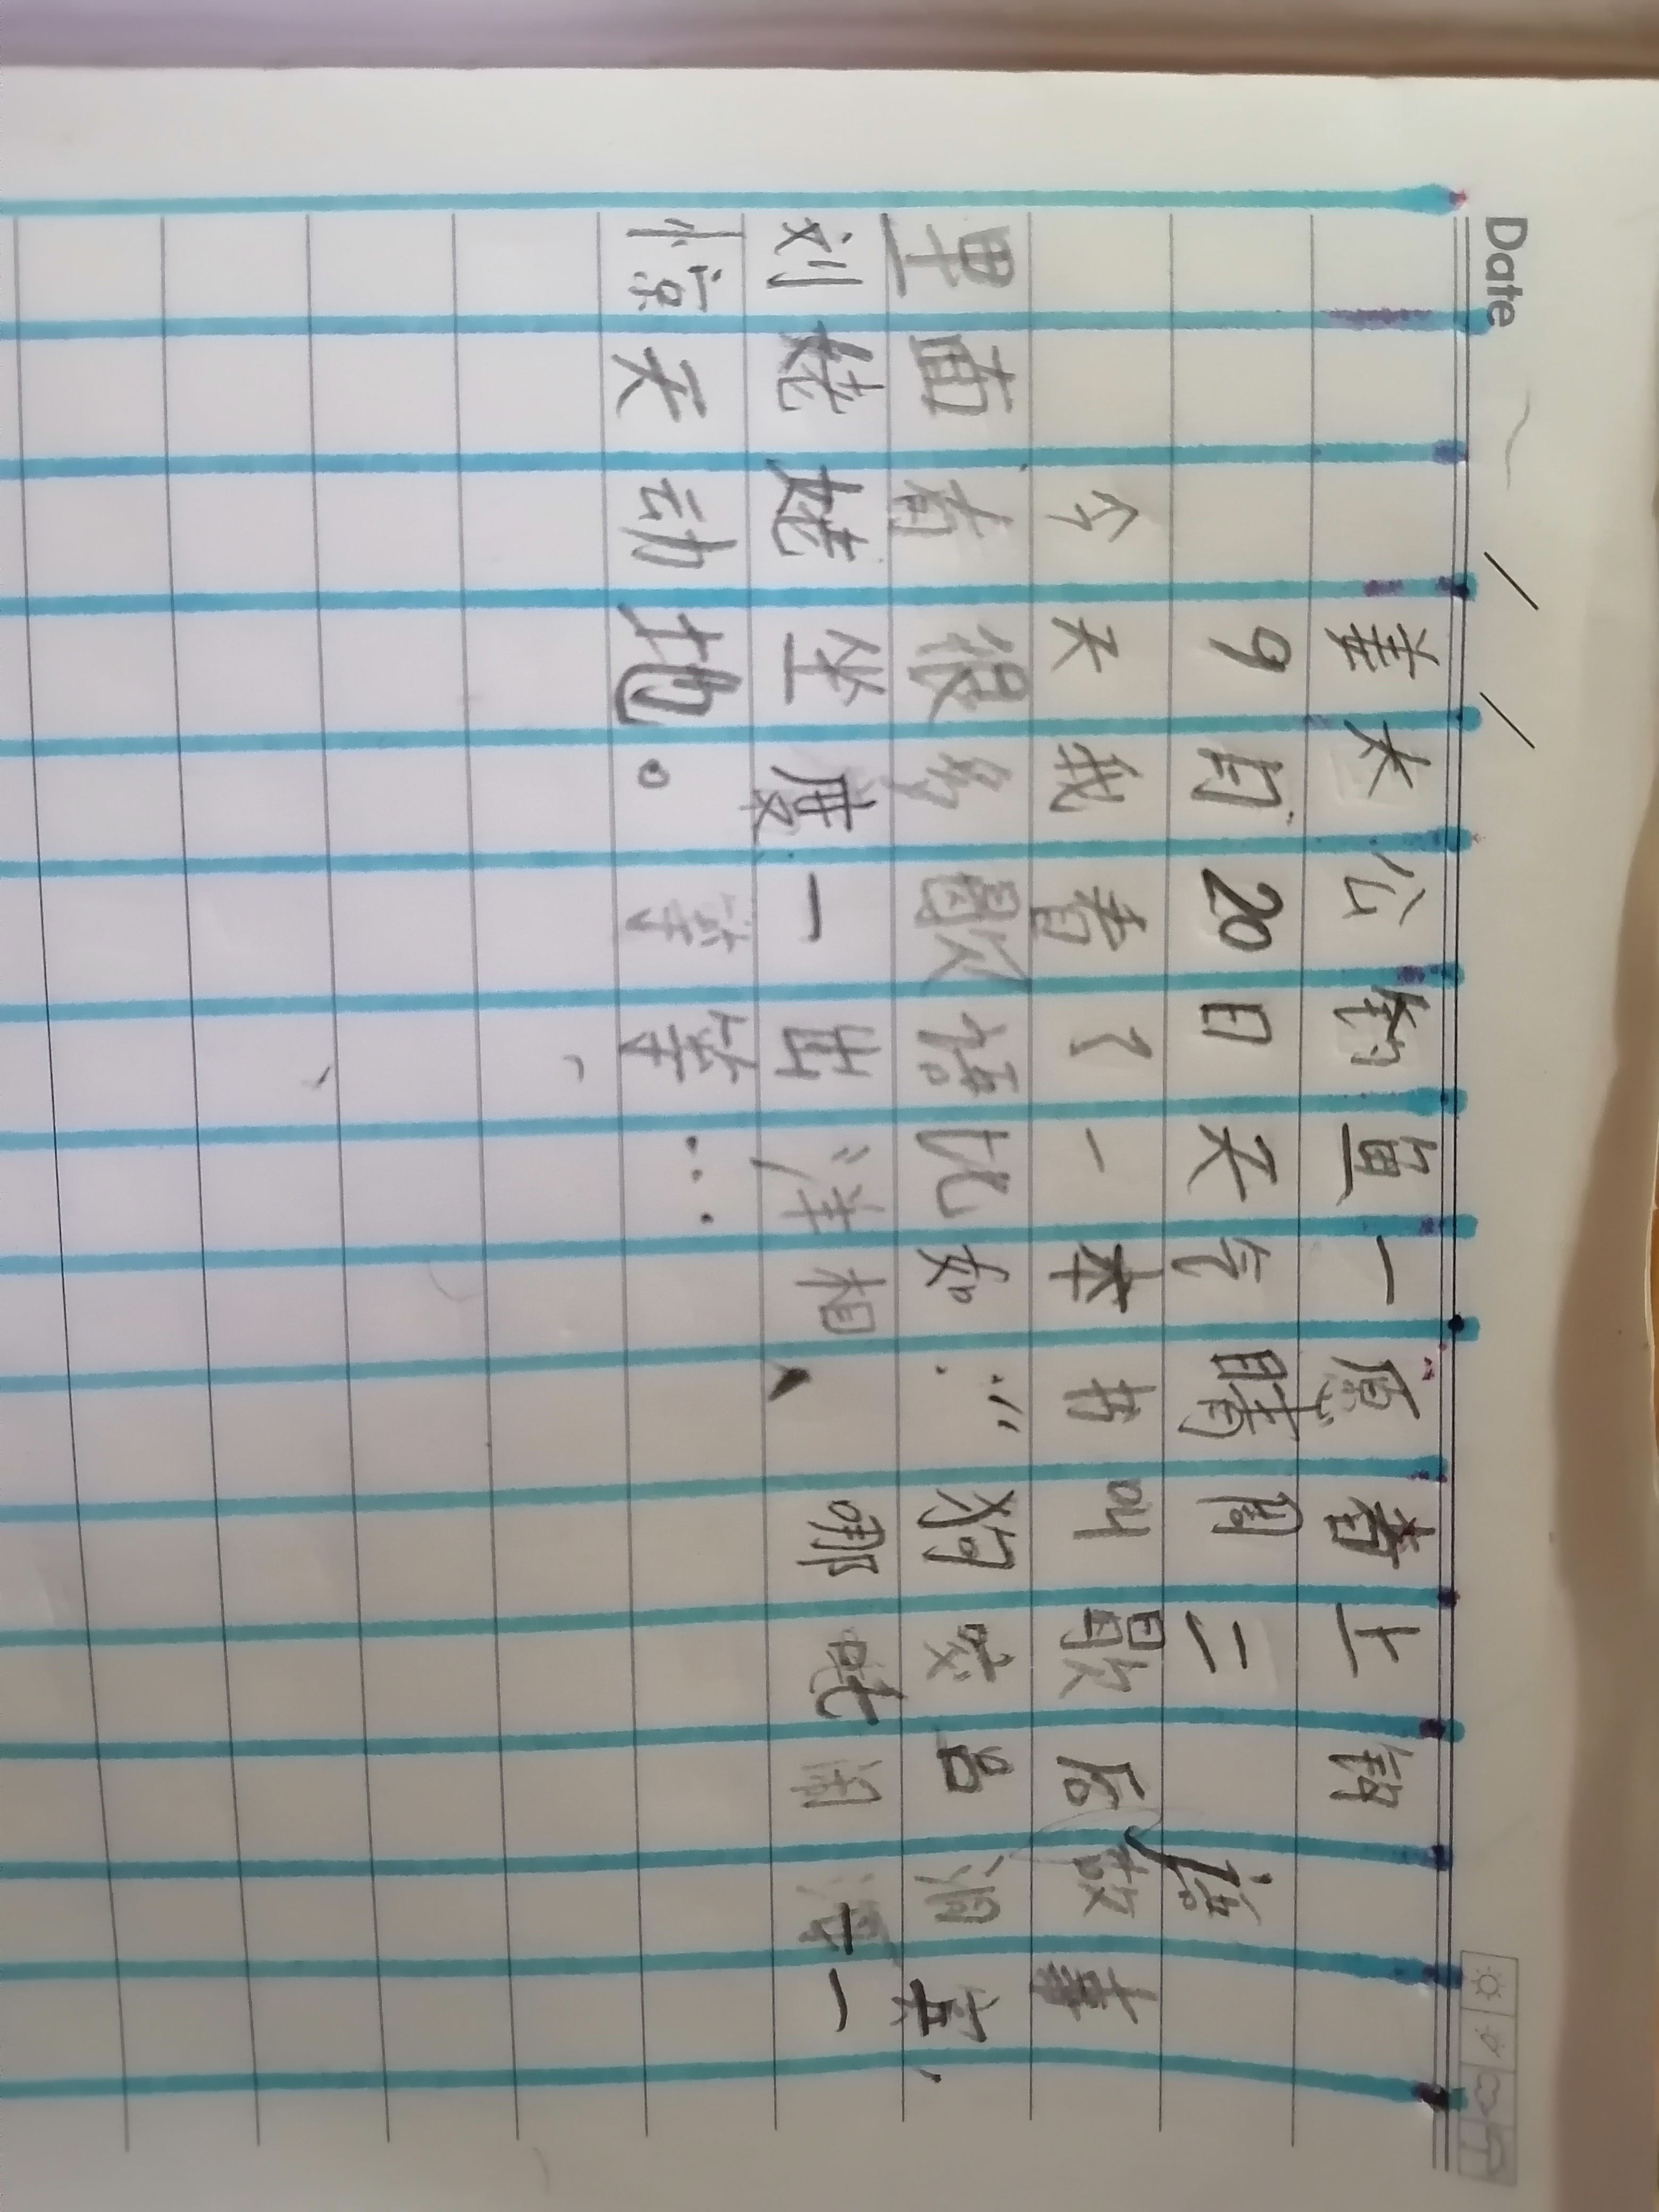 Date / /
姜太公钓鱼一愿者上钩
9月20日天气晴周二
今天我看了一本书叫歇后语故事
里面有很多歇语比如:“狗咬吕洞宾,
刘姥姥坐度一出洋相、哪吒闹海一
惊天动地。等等…